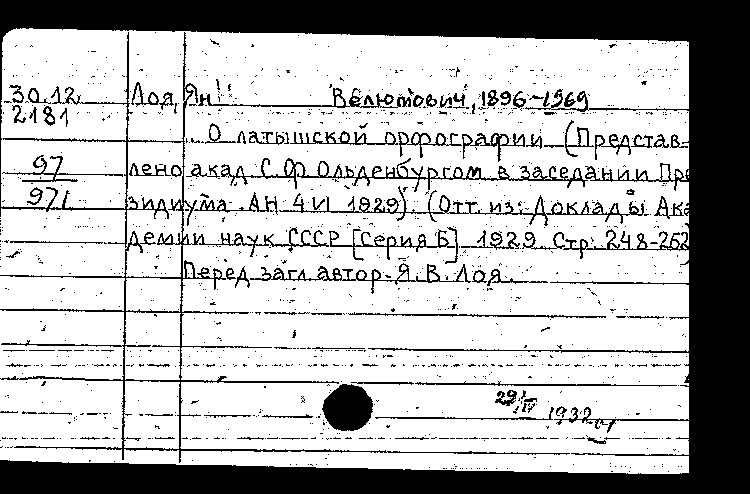 30.12
2181
97
971
Лоя, Ян Велютович, 1896-1969
О латышской орфографии (Представ-
лено акад С.Ф Ольденбургом в заседании Пре
зидиума АН 4 VI 1929). (Отт. из: Доклады Ака
демии наук СССР [Серия Б] 1929 Стр. 248-252
Перед загл. автор-Я.В. Лоя.
29/IV 1932